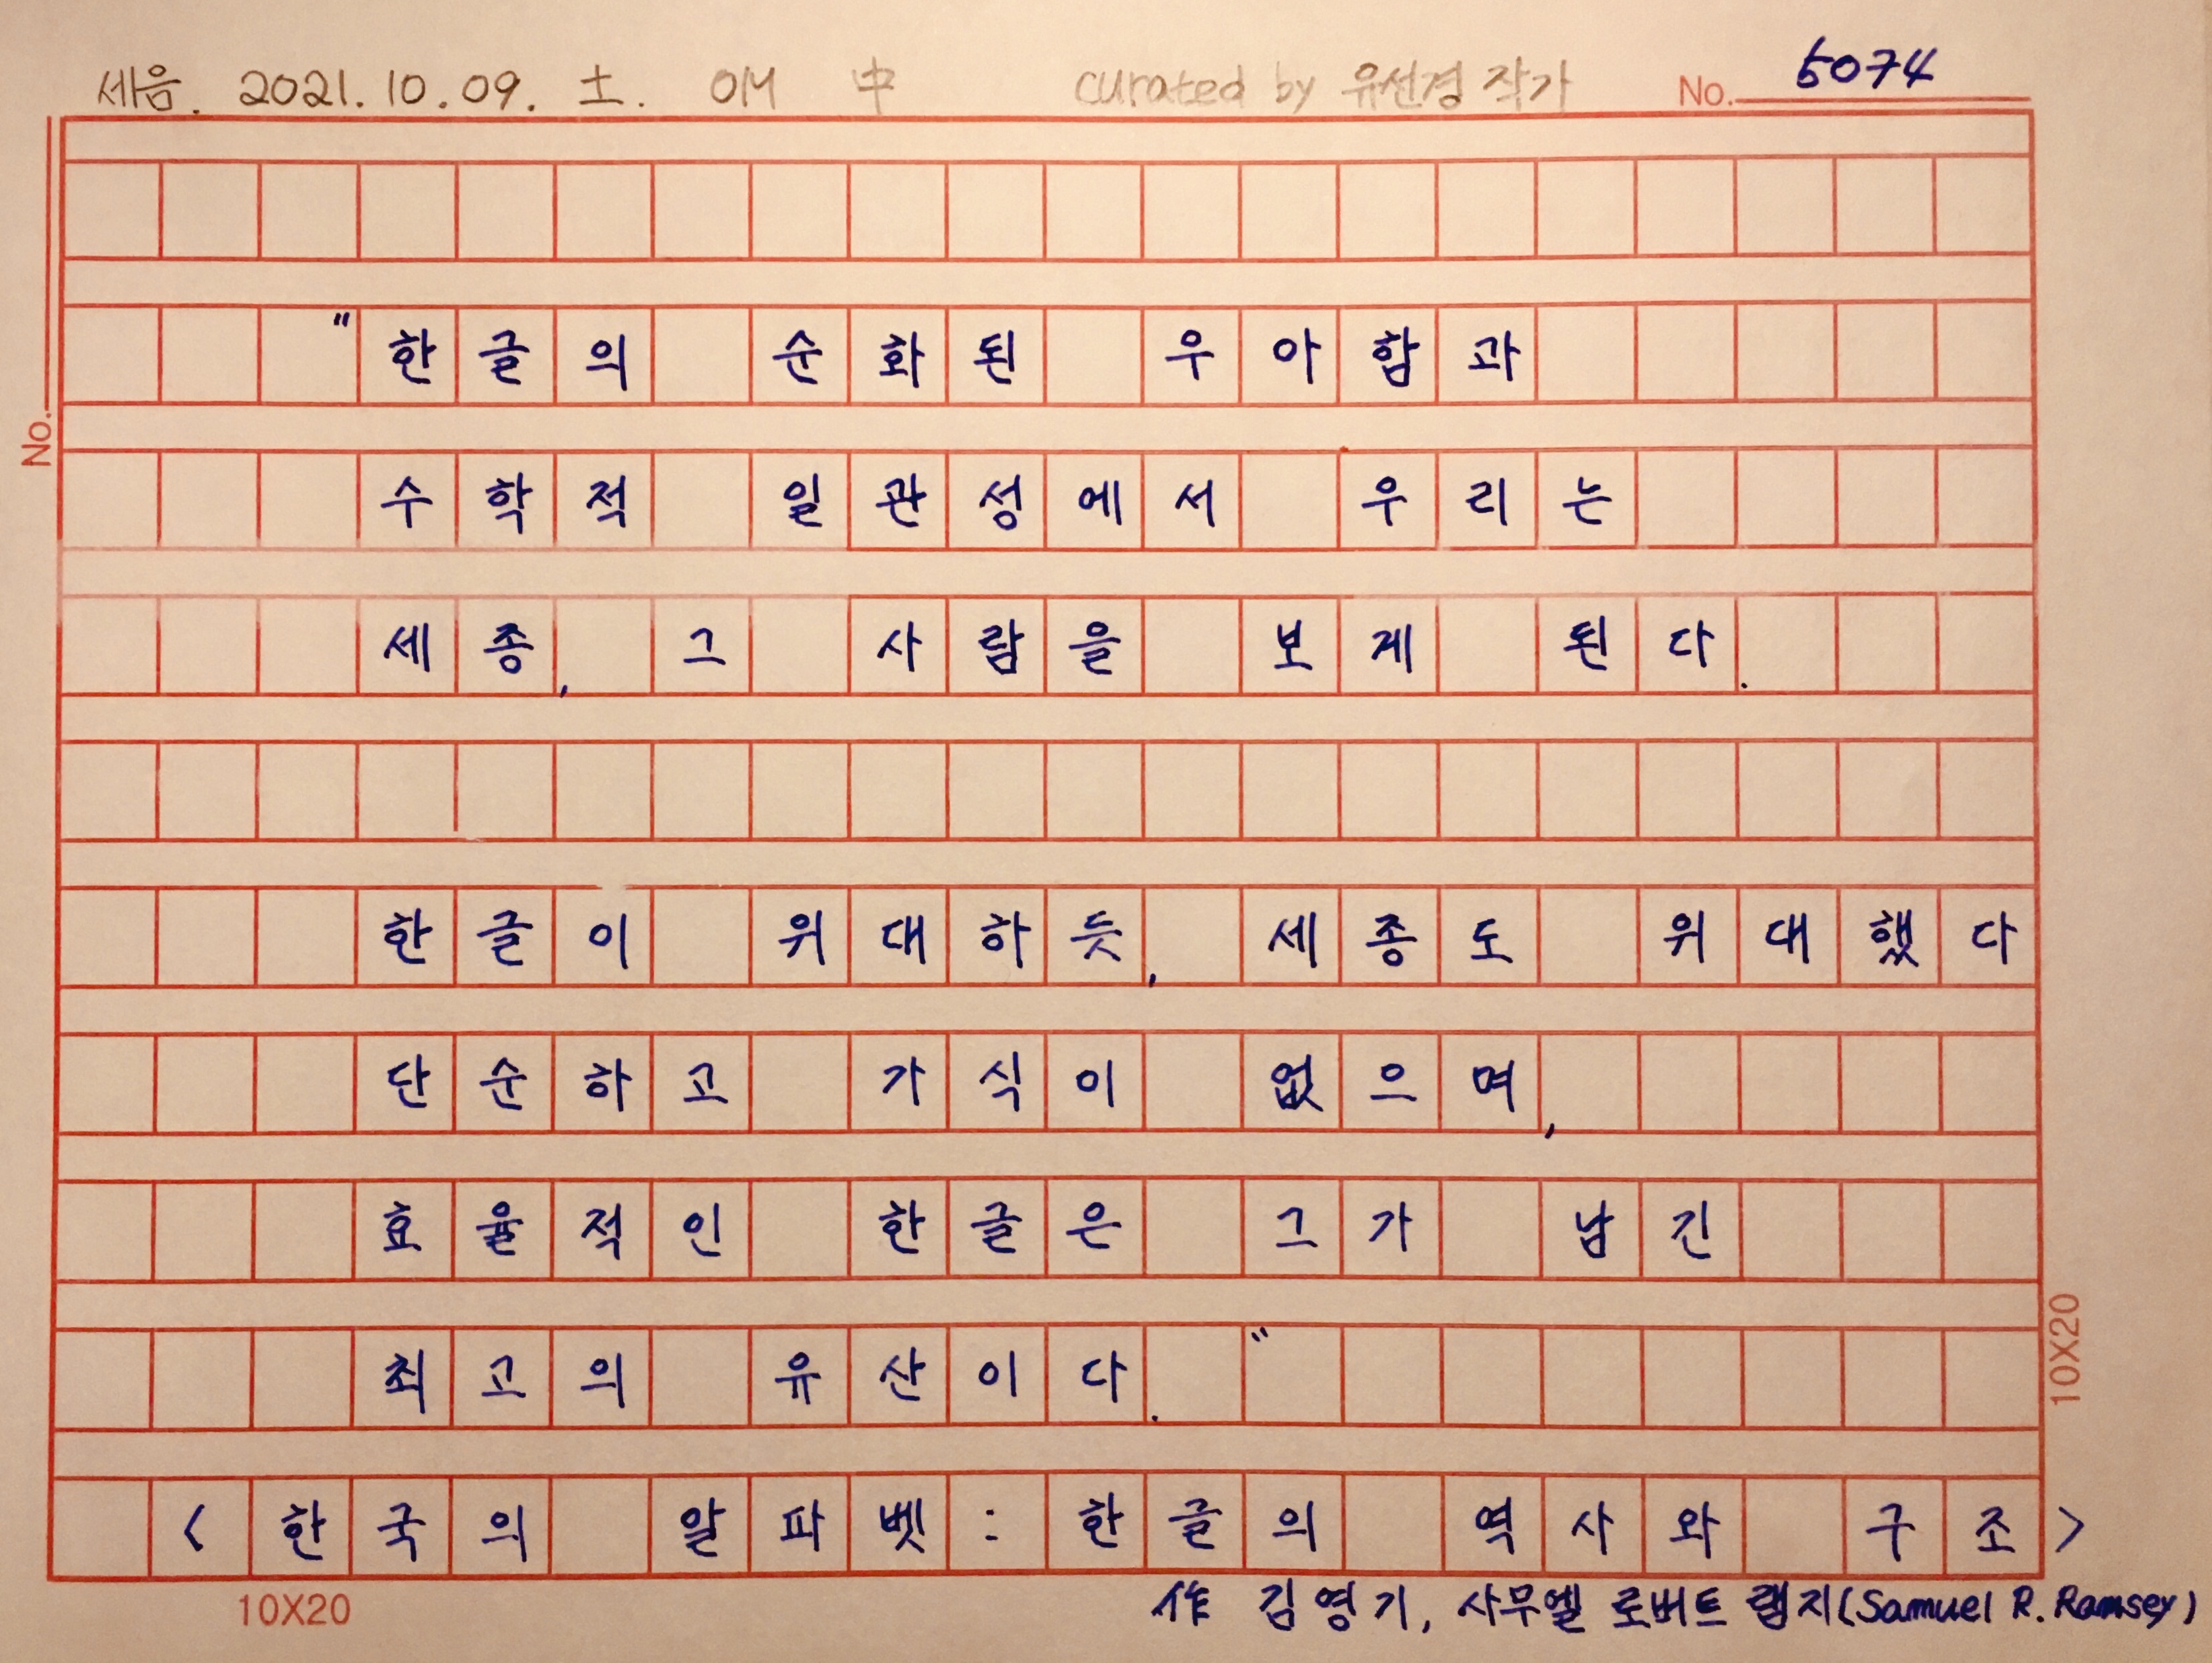 세음. 2021.10.09. 土. OM 中 curated by 유선경 작가 No. 5074
"한글의 순화된 우아함과
No.
수학적 일관성에서 우리는
세종, 그 사람을 보게 된다.
한글이 위대하듯, 세종도 위대했다
단순하고 가식이 없으며,
효율적인 한글은 그가 남긴
최고의 유산이다."
10X20
<한국의 알파벳 : 한글의 역사와 구조>
10X20
作 김영기, 사무엘 로버트 램지(Samuel R. Ramsey)